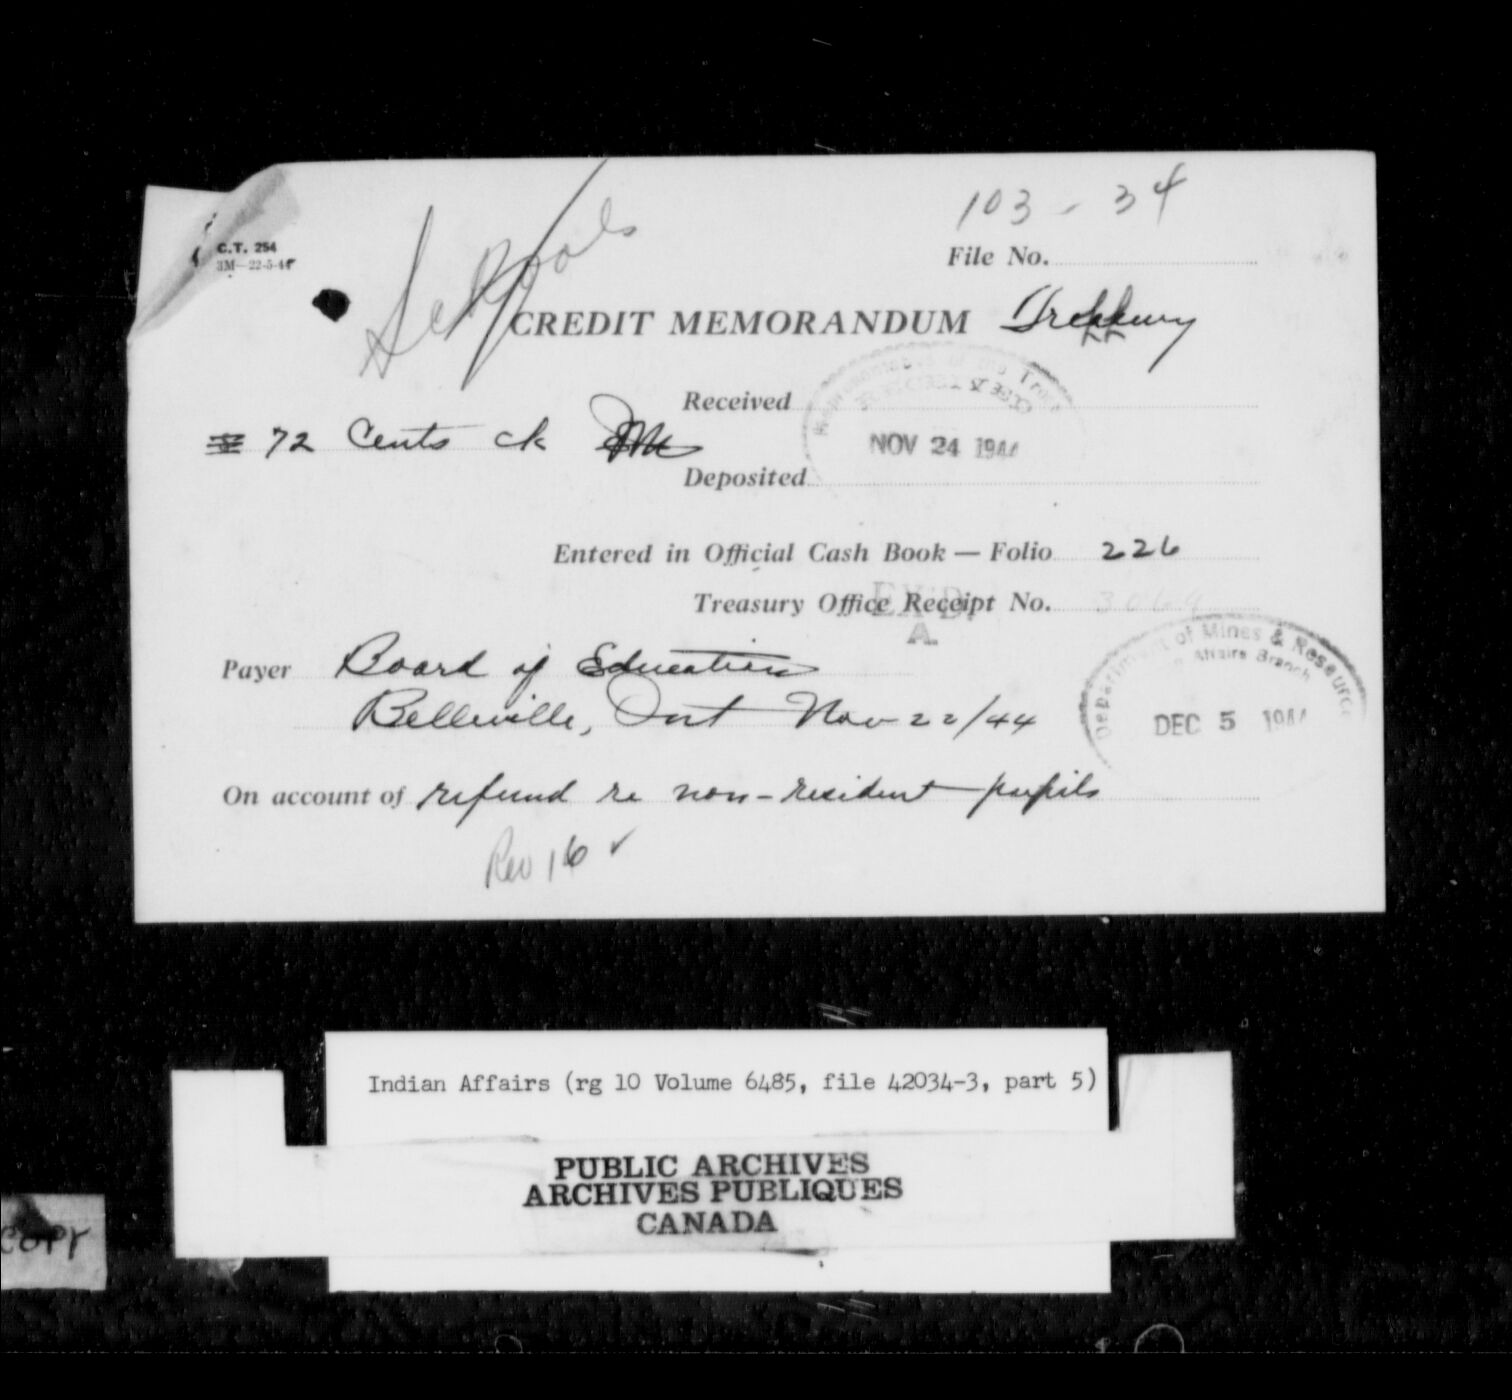 103 - 34
C.T. 254
3M—22-5-44
File No.
Schools
CREDIT MEMORANDUM
Received
RECEIVED
72 Cents ck
NOV 24 1944
Deposited
Entered in Official Cash Book — Folio 226
Treasury Office Receipt No. 3069
EX'D.
A.
Payer Board of Education
Belleville, Ont Nov 22/44
Department of Mines & Resources
Affairs Branch
DEC 5 1944
On account of refund re non-resident pupils
Rev 16 ✓
Indian Affairs (rg 10 Volume 6485, file 42034-3, part 5)
PUBLIC ARCHIVES
ARCHIVES PUBLIQUES
CANADA
COPY